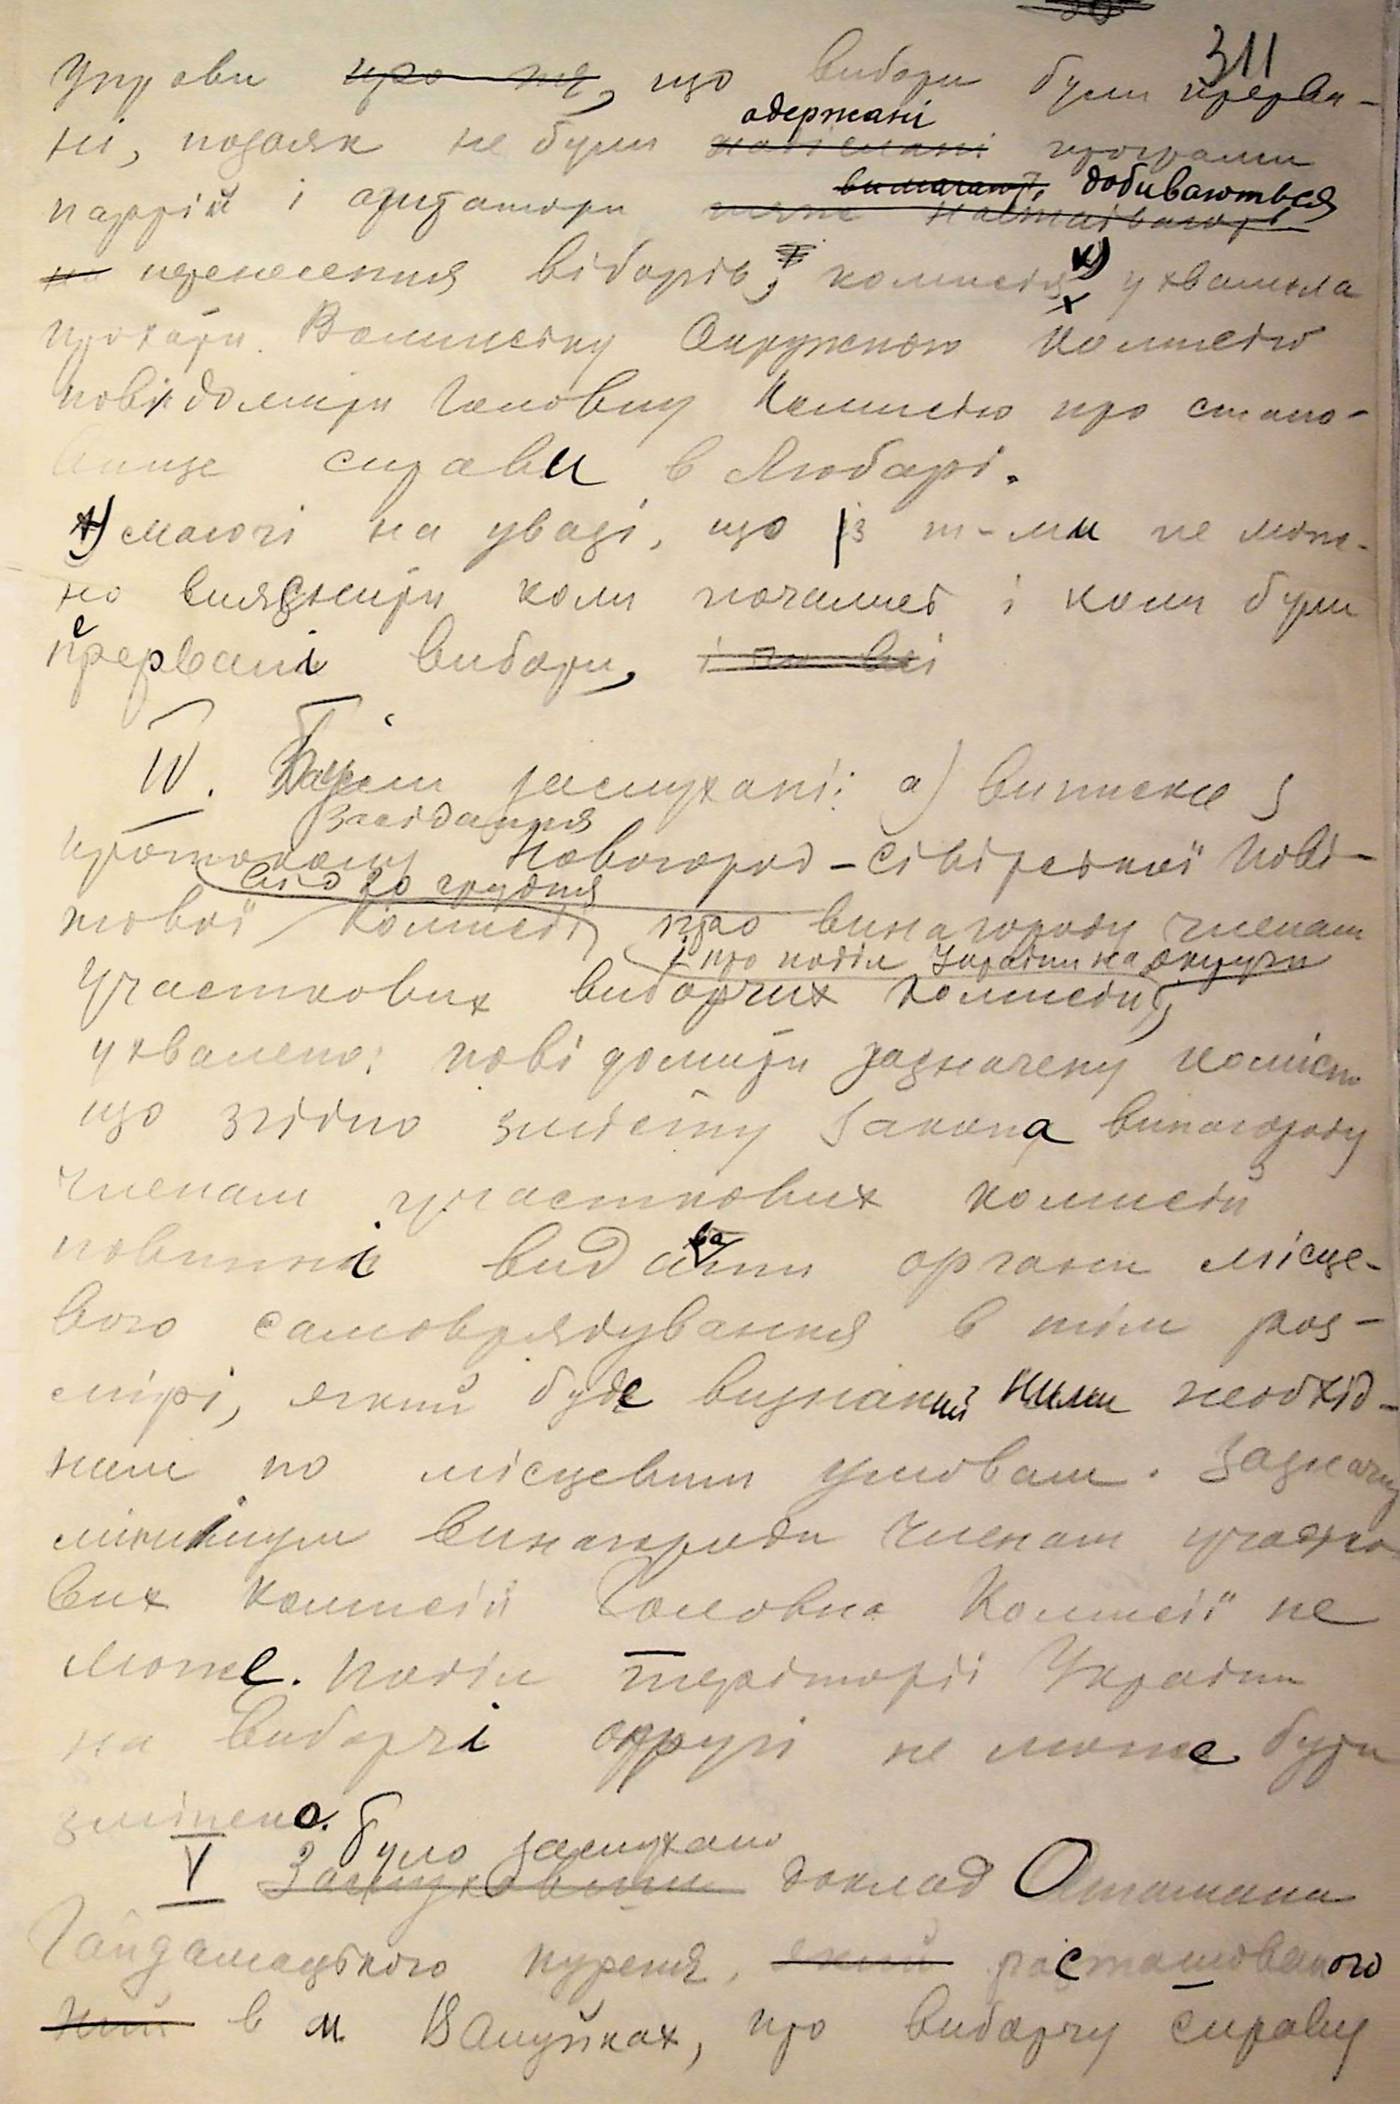 311
Управи про те, що вибори були прерва-
ні, позаяк не були одержані програми
партій і агітатори вимагають, добиваються
перенесення віборів, комисія х) ухвалила
прохати Волинську Окружною Комисію
повідомити Головну Комисію про стано-
вище справи в Любарі.
х) маючі на увазі, що із т-ми не мож-
но вияснити коли почались і коли були
прервані вибори, і чи всі
IV. Були заслухані: а) виписка з
протоколу засідання Новогород-Сіверської Пові-
від 20 грудня
тової Комисії про винагороду членам
і про поділ України на округи
участкових виборчих комисій,
ухвалено: повідомити зазначену комісію
що згідно змісту закона винагороду
членам участкових комисій
повинні видавати органи місце-
вого самоврядування в тім роз-
мірі, який буде визнаний ними необхід-
ним по місцевим умовам. Зазначу
мінімум винагороди членам участко
вих комисій Головна Комисії не
може. Поділ теріторії України
на виборчі округі не може бути
змінено.
V Було заслухано
Заслухавши доклад Отамана
Гайдамацького куреня, який росташованого
в м. Валуйках, про виборчу справу